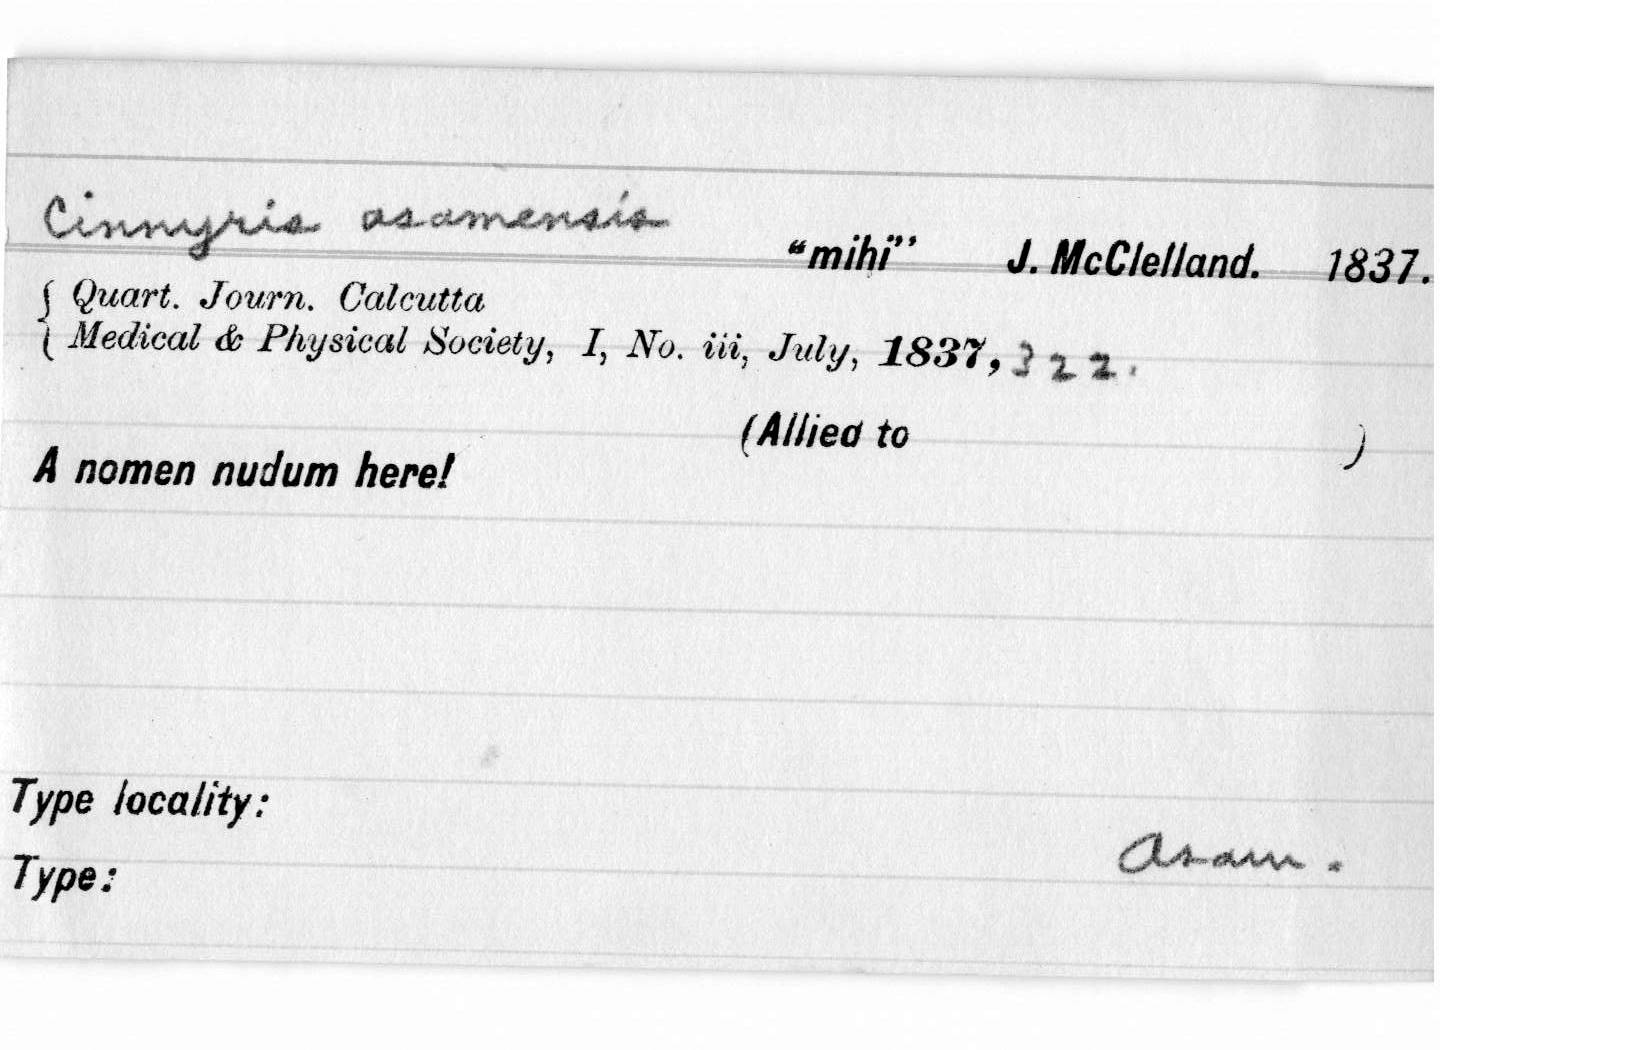 Cinnyris asamensis
"mihi" J. McClelland. 1837.
{ Quart. Journ. Calcutta
{ Medical & Physical Society, I, No. iii, July, 1837, 322.
(Allied to )
A nomen nudum here!
Type locality:
Asam.
Type: